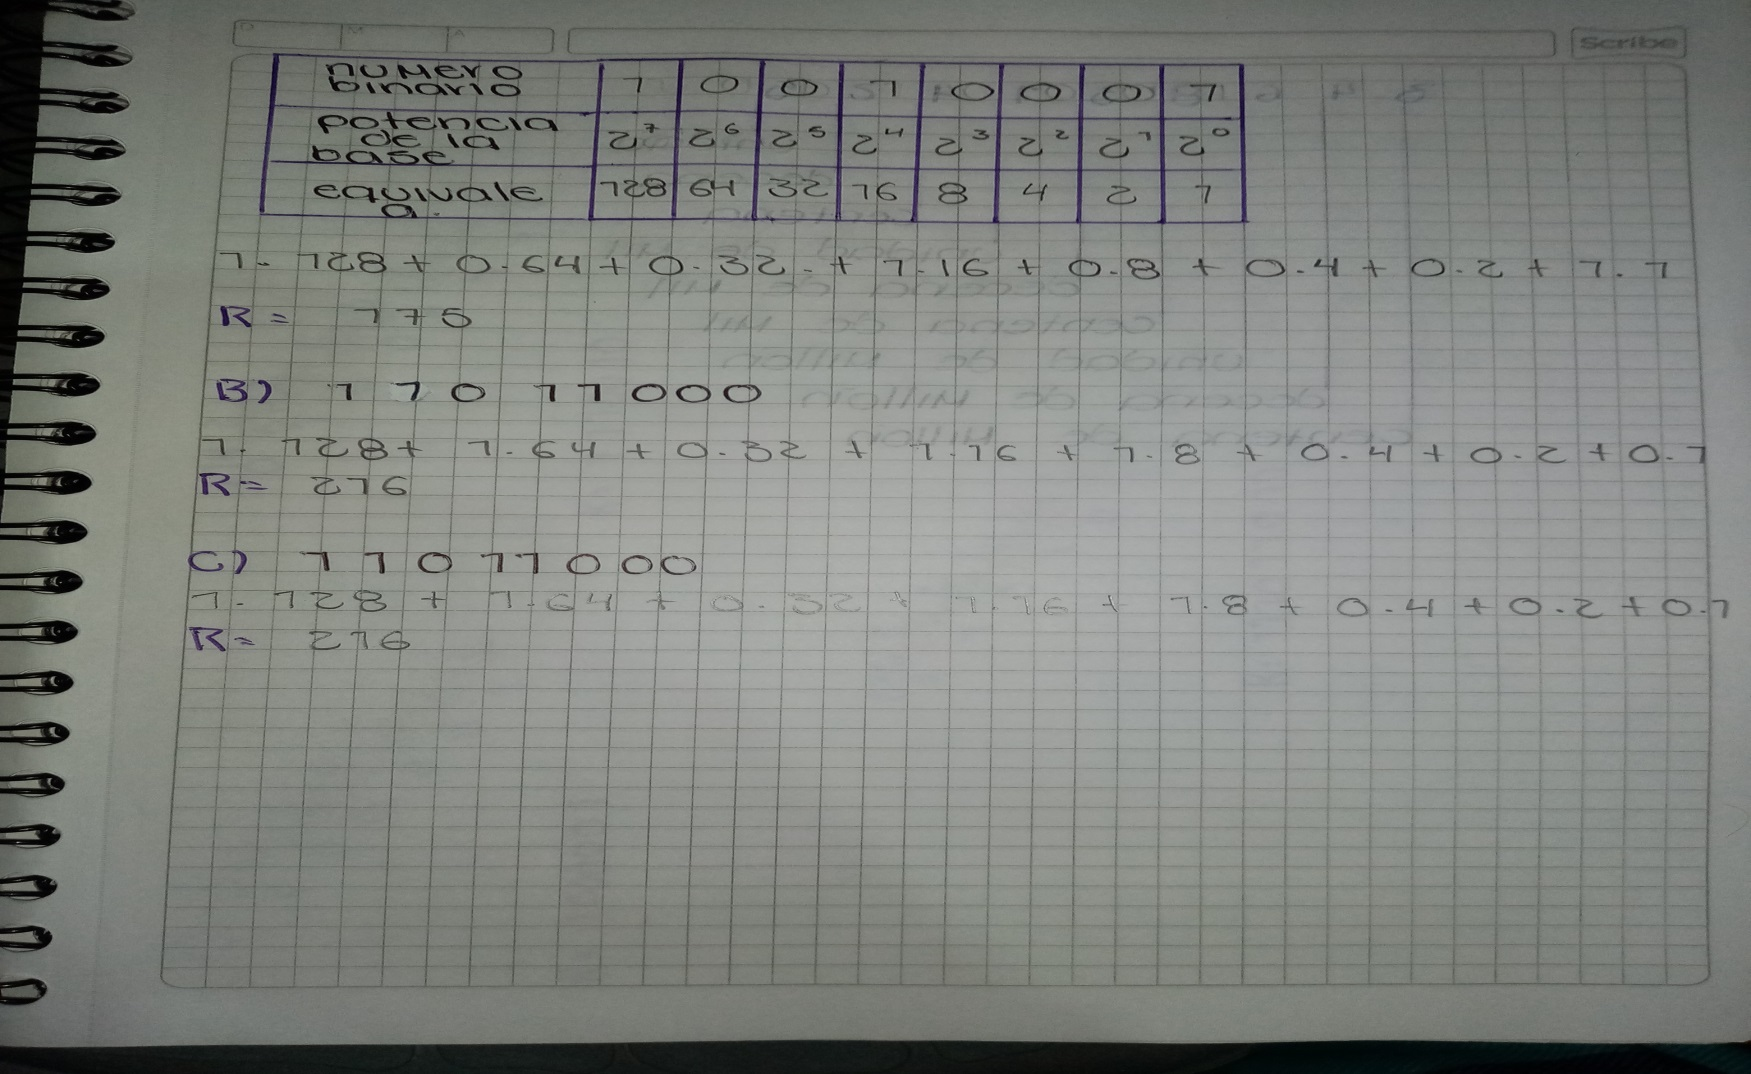 D M A Scribe
numero binario 1 0 0 1 0 0 0 1
potencia de la base 2⁷ 2⁶ 2⁵ 2⁴ 2³ 2² 2¹ 2⁰
equivale a. 128 64 32 16 8 4 2 1
1. 128 + 0.64 + 0.32. + 1.16 + 0.8 + 0.4 + 0.2 + 1.1
R = 175
B) 1 1 0 1 1 0 0 0
1. 128 + 1.64 + 0.32 + 1.16 + 1.8 + 0.4 + 0.2 + 0.1
R = 216
C) 1 1 0 1 1 0 0 0
1. 128 + 1.64 + 0.32 + 1.16 + 1.8 + 0.4 + 0.2 + 0.1
R = 216